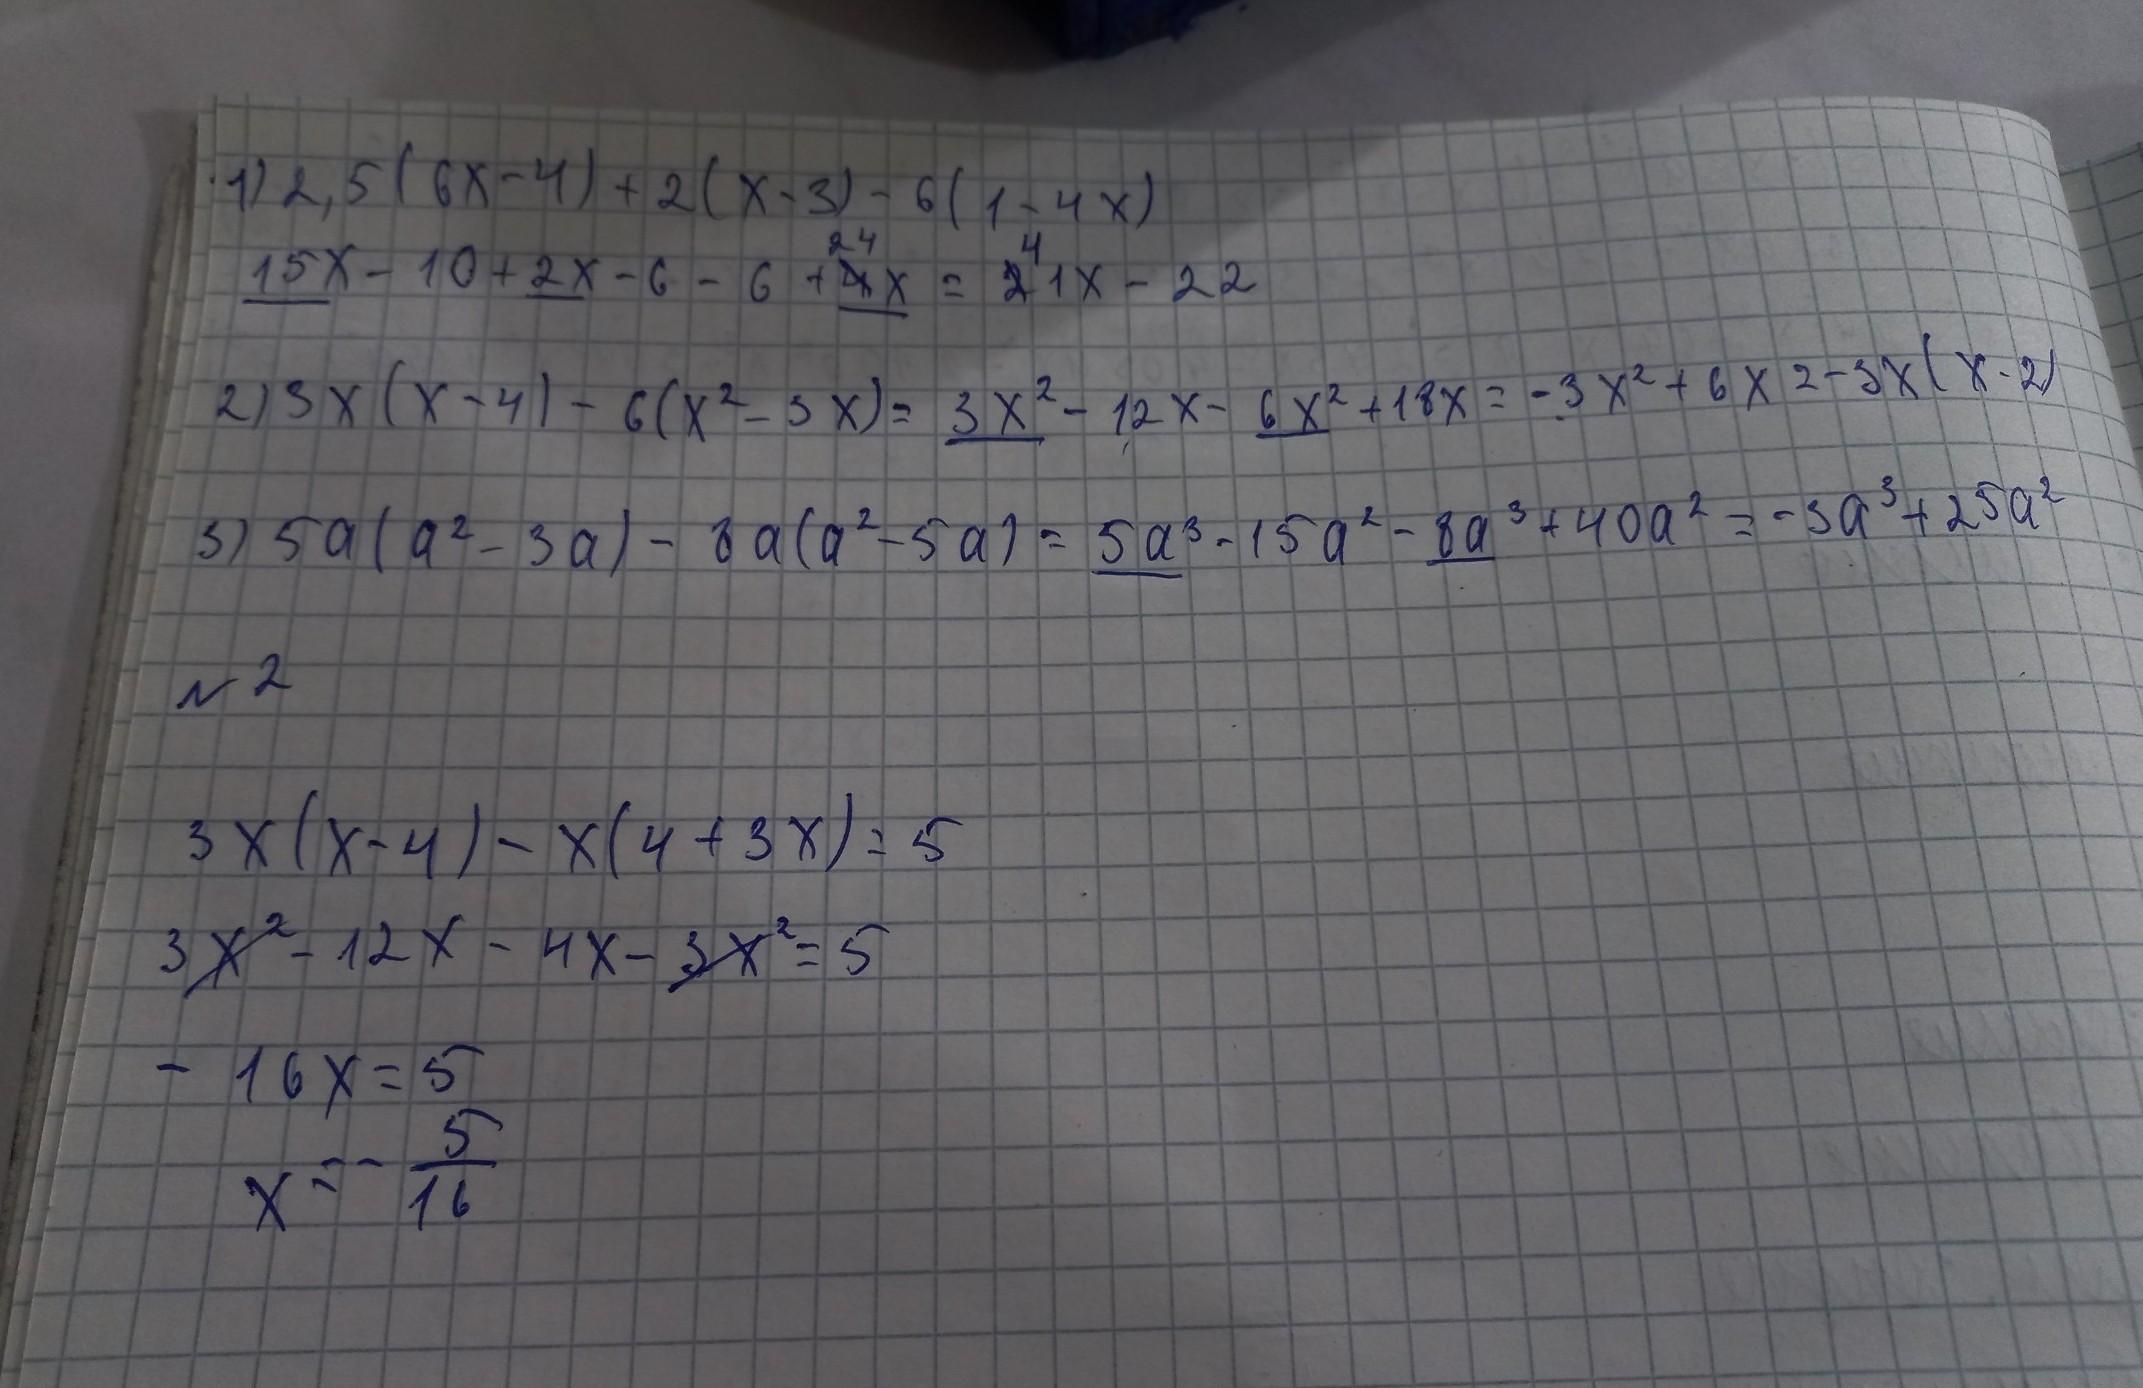 1) 2,5(6x-4)+2(x-3)-6(1-4x)
15x-10+2x-6-6+24x=41x-22
2) 3x(x-4)-6(x²-3x)=3x²-12x-6x²+18x=-3x²+6x=-3x(x-2)
3) 5a(a²-3a)-8a(a²-5a)=5a³-15a²-8a³+40a²=-3a³+25a²
№2
3x(x-4)-x(4+3x)=5
3x²-12x-4x-3x²=5
-16x=5
x=-5/16